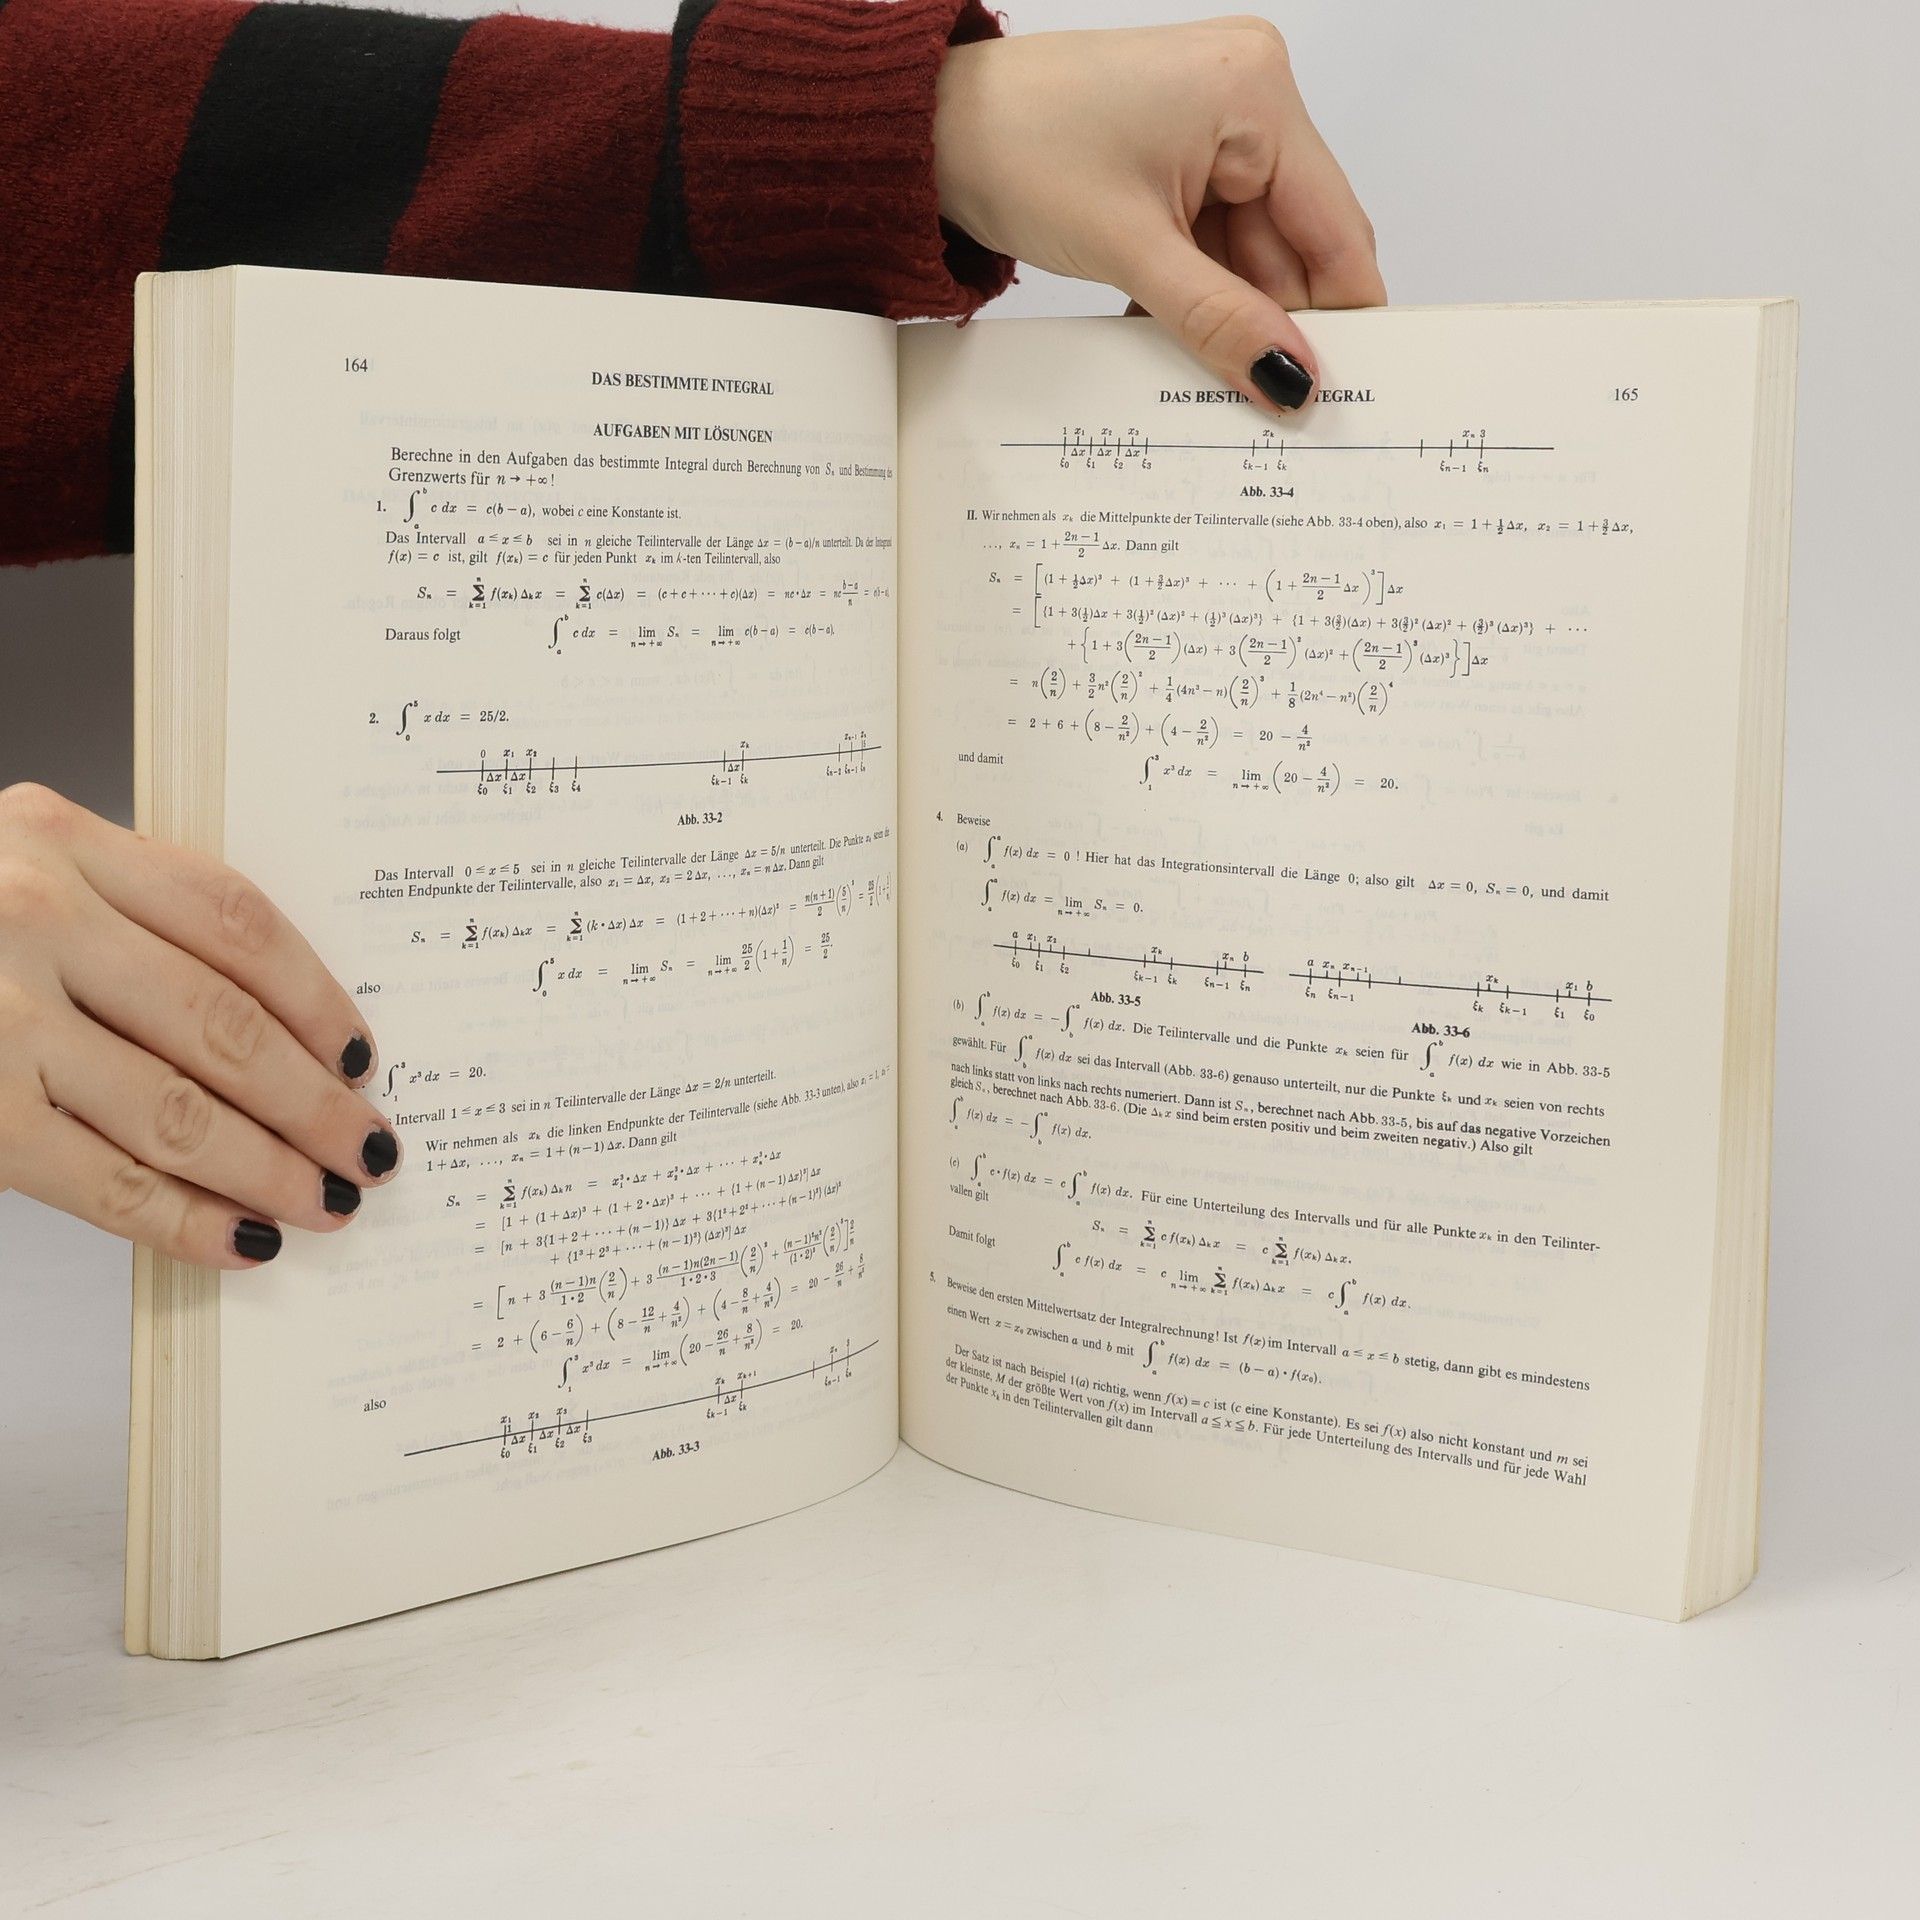 164
DAS BESTIMMTE INTEGRAL
AUFGABEN MIT LÖSUNGEN
Berechne in den Aufgaben das bestimmte Integral durch Berechnung von Sₙ und Bestimmung des
Grenzwerts für n → +∞ !
1. ∫ₐᵇ c dx = c(b − a), wobei c eine Konstante ist.
Das Intervall a ≤ x ≤ b sei in n gleiche Teilintervalle der Länge Δx = (b − a)/n unterteilt. Da der
f(x) = c ist, gilt f(xₖ) = c für jeden Punkt xₖ im k-ten Teilintervall, also
Sₙ = Σₖ₌₁ⁿ f(xₖ) Δₖx = Σₖ₌₁ⁿ c(Δx) = (c + c + ⋯ + c)(Δx) = nc • Δx = nc (b − a)/n = c(b − a).
Daraus folgt ∫ₐᵇ c dx = lim n→+∞ Sₙ = lim n→+∞ c(b − a) = c(b − a).
2. ∫₀⁵ x dx = 25/2.
0 x₁ x₂ xₖ xₙ₋₁ xₙ
Δx Δx Δx
ξ₀ ξ₁ ξ₂ ξ₃ ξ₄ ξₖ₋₁ ξₖ ξₙ₋₂ ξₙ₋₁ ξₙ
Abb. 33-2
Das Intervall 0 ≤ x ≤ 5 sei in n gleiche Teilintervalle der Länge Δx = 5/n unterteilt. Die Punkte xₖ seien die
rechten Endpunkte der Teilintervalle, also x₁ = Δx, x₂ = 2 Δx, …, xₙ = n Δx. Dann gilt
Sₙ = Σₖ₌₁ⁿ f(xₖ) Δₖx = Σₖ₌₁ⁿ (k • Δx) Δx = (1 + 2 + ⋯ + n)(Δx)² = n(n + 1)/2 (5/n)² = 25/2 (1 + 1/n)
also ∫₀⁵ x dx = lim n→+∞ Sₙ = lim n→+∞ 25/2 (1 + 1/n) = 25/2.
∫₁³ x³ dx = 20.
Intervall 1 ≤ x ≤ 3 sei in n Teilintervalle der Länge Δx = 2/n unterteilt.
Wir nehmen als xₖ die linken Endpunkte der Teilintervalle (siehe Abb. 33-3 unten), also x₁ = 1, x₂ =
1 + Δx, …, xₙ = 1 + (n − 1) Δx. Dann gilt
Sₙ = Σₖ₌₁ⁿ f(xₖ) Δₖn = x₁³ • Δx + x₂³ • Δx + ⋯ + xₙ³ • Δx
= [1 + (1 + Δx)³ + (1 + 2 • Δx)³ + ⋯ + {1 + (n − 1) Δx}³] Δx
= [n + 3{1 + 2 + ⋯ + (n − 1)} Δx + 3{1² + 2² + ⋯ + (n − 1)²} (Δx)²
+ {1³ + 2³ + ⋯ + (n − 1)³} (Δx)³] Δx
= [n + 3 (n − 1)n/1 • 2 (2/n) + 3 (n − 1)n(2n − 1)/1 • 2 • 3 (2/n)² + (n − 1)²n²/(1 • 2)² (2/n)³] 2/n
= 2 + (6 − 6/n) + (8 − 12/n + 4/n²) + (4 − 8/n + 4/n²) = 20 − 26/n + 8/n²
also ∫₁³ x³ dx = lim n→+∞ (20 − 26/n + 8/n²) = 20.
x₁ x₂ x₃ xₖ xₖ₊₁ xₙ 3
1 Δx Δx Δx Δx
ξ₀ ξ₁ ξ₂ ξ₃ ξₖ₋₁ ξₖ ξₙ₋₁ ξₙ
Abb. 33-3
DAS BESTIM TEGRAL
165
1 x₁ x₂ x₃ xₖ xₙ 3
Δx Δx Δx
ξ₀ ξ₁ ξ₂ ξ₃ ξₖ₋₁ ξₖ ξₙ₋₁ ξₙ
Abb. 33-4
II. Wir nehmen als xₖ die Mittelpunkte der Teilintervalle (siehe Abb. 33-4 oben), also x₁ = 1 + ½ Δx, x₂ = 1 + 3/2 Δx,
…, xₙ = 1 + (2n − 1)/2 Δx. Dann gilt
Sₙ = [(1 + ½Δx)³ + (1 + 3/2Δx)³ + ⋯ + (1 + (2n − 1)/2 Δx)³] Δx
= [{1 + 3(½)Δx + 3(½)² (Δx)² + (½)³ (Δx)³} + {1 + 3(3/2)(Δx) + 3(3/2)² (Δx)² + (3/2)³ (Δx)³} + ⋯
+ {1 + 3((2n − 1)/2)(Δx) + 3((2n − 1)/2)² (Δx)² + ((2n − 1)/2)³ (Δx)³}] Δx
= n(2/n) + 3/2 n² (2/n)² + 1/4 (4n³ − n)(2/n)³ + 1/8 (2n⁴ − n²)(2/n)⁴
= 2 + 6 + (8 − 2/n²) + (4 − 2/n²) = 20 − 4/n²
und damit ∫₁³ x³ dx = lim n→+∞ (20 − 4/n²) = 20.
4. Beweise
(a) ∫ₐᵃ f(x) dx = 0 ! Hier hat das Integrationsintervall die Länge 0; also gilt Δx = 0, Sₙ = 0, und damit
∫ₐᵃ f(x) dx = lim n→+∞ Sₙ = 0.
a x₁ x₂ xₖ xₙ b a xₙ xₙ₋₁ xₖ x₁ b
ξ₀ ξ₁ ξ₂ ξₖ₋₁ ξₖ ξₙ₋₁ ξₙ ξₙ ξₙ₋₁ ξₖ ξₖ₋₁ ξ₁ ξ₀
Abb. 33-5
Abb. 33-6
(b) ∫ₐᵇ f(x) dx = −∫_bᵃ f(x) dx. Die Teilintervalle und die Punkte xₖ seien für ∫ₐᵇ f(x) dx wie in Abb. 33-5
gewählt. Für ∫_bᵃ f(x) dx sei das Intervall (Abb. 33-6) genauso unterteilt, nur die Punkte ξₖ und xₖ seien von rechts
nach links statt von links nach rechts numeriert. Dann ist Sₙ, berechnet nach Abb. 33-5, bis auf das negative Vorzeichen
gleich Sₙ, berechnet nach Abb. 33-6. (Die Δₖx sind beim ersten positiv und beim zweiten negativ.) Also gilt
∫ₐᵇ f(x) dx = −∫_bᵃ f(x) dx.
(c) ∫ₐᵇ c • f(x) dx = c∫ₐᵇ f(x) dx. Für eine Unterteilung des Intervalls und für alle Punkte xₖ in den Teilinter-
vallen gilt
Sₙ = Σₖ₌₁ⁿ c f(xₖ) Δₖx = c Σₖ₌₁ⁿ f(xₖ) Δₖx.
Damit folgt
∫ₐᵇ c f(x) dx = c lim n→+∞ Σₖ₌₁ⁿ f(xₖ) Δₖx = c∫ₐᵇ f(x) dx.
5. Beweise den ersten Mittelwertsatz der Integralrechnung! Ist f(x) im Intervall a ≤ x ≤ b stetig, dann gibt es mindestens
einen Wert x = x₀ zwischen a und b mit ∫ₐᵇ f(x) dx = (b − a) • f(x₀).
Der Satz ist nach Beispiel 1(a) richtig, wenn f(x) = c ist (c eine Konstante). Es sei f(x) also nicht konstant und m sei
der kleinste, M der größte Wert von f(x) im Intervall a ≤ x ≤ b. Für jede Unterteilung des Intervalls und für jede Wahl
der Punkte xₖ in den Teilintervallen gilt dann